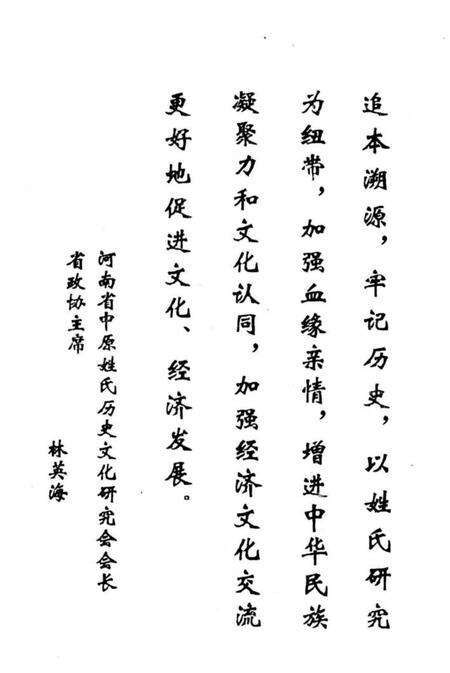 追本溯源，牢记历史，以姓氏研究
为纽带，加强血缘亲情，增进中华民族
凝聚力和文化认同，加强经济文化交流
更好地促进文化、经济发展。
河南省中原姓氏历史文化研究会会长
省政协主席
林英海